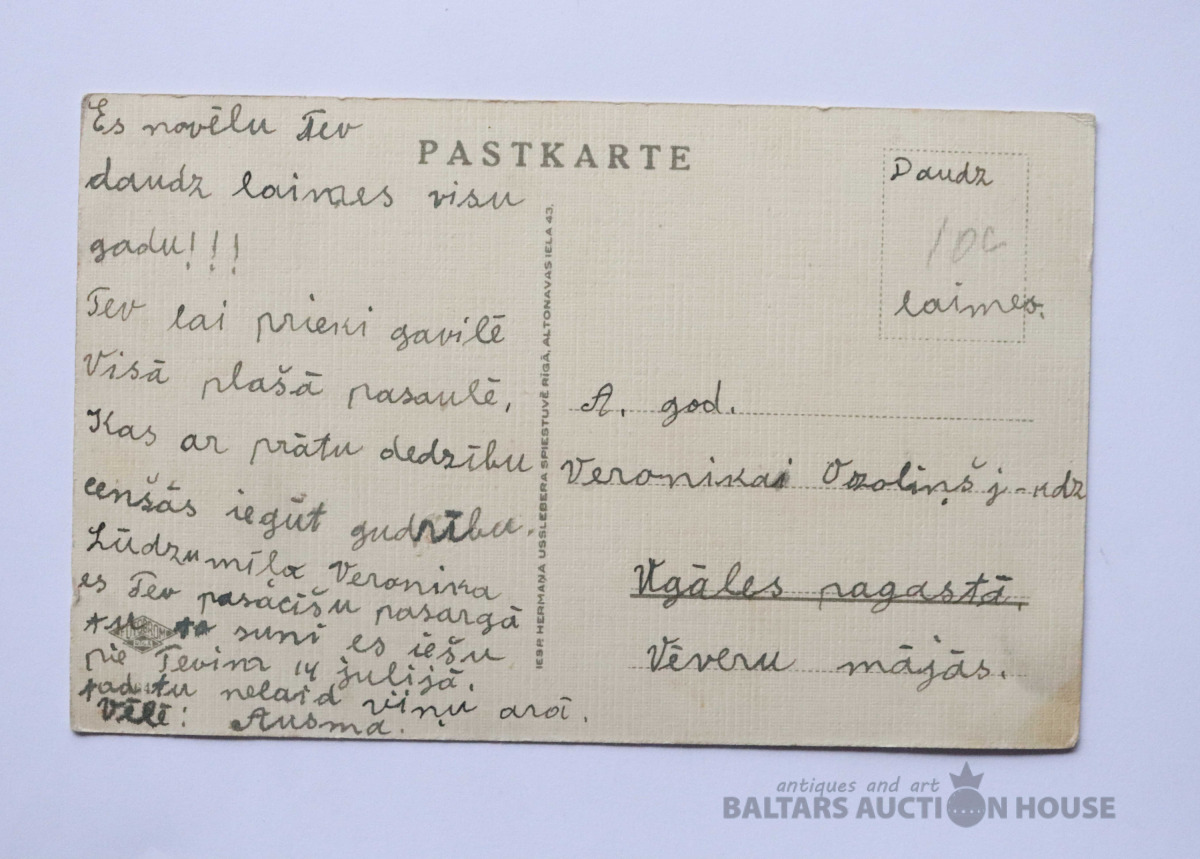 Es novēlu Tev
daudz laimes visu
gadu!!!
Tev lai prieki gavilē
Visā plašā pasaulē,
Kas ar prātu dedzību
cenšās iegūt gudrību.
Lūdzu mīļa Veronika
es Tev pasacīšu pasargā
tu to suni es iešu
pie Teviņ 14 julijā,
tad tu nelaid viņu arā.
Vēlē: Ausma.
PASTKARTE
IESP. HERMAŅA USSLEBERA SPIESTUVĒ RĪGĀ, ALTONAVAS IELA 43.
Daudz
10c
laimes.
A. god.
Veronikai Ozoliņš j-kdz
Ugāles pagastā,
Vēveru mājās.
antiques and art
BALTARS AUCTION HOUSE